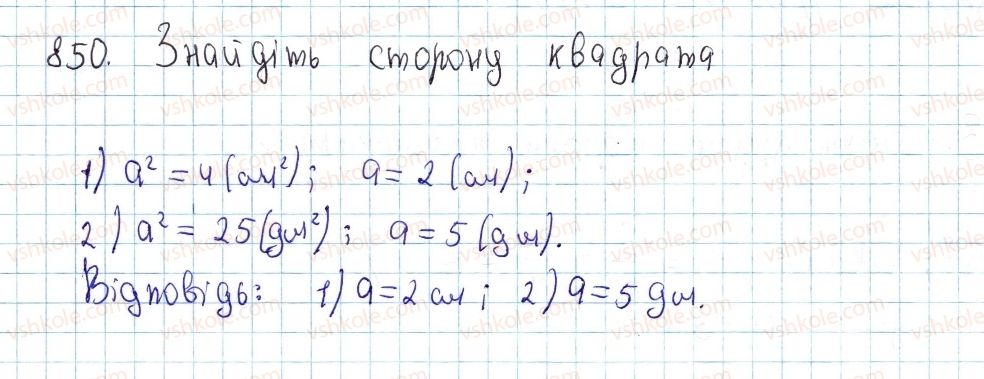 850. Знайдіть сторону квадрата
1) a² = 4 (см²); a = 2 (см);
2) a² = 25 (дм²); a = 5 (дм).
Відповідь: 1) a = 2 см; 2) a = 5 дм.